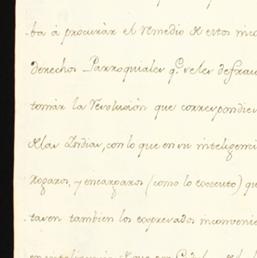 ba á procurár el remedio de estos inco
derechos Parroquiales q.e se les defrau
tomár la resolucion que correspondie
de las Indias, con lo que en su inteligenci
rogaros, y encargaros (como lo executo) qu
taren tambien los expresados inconvenie